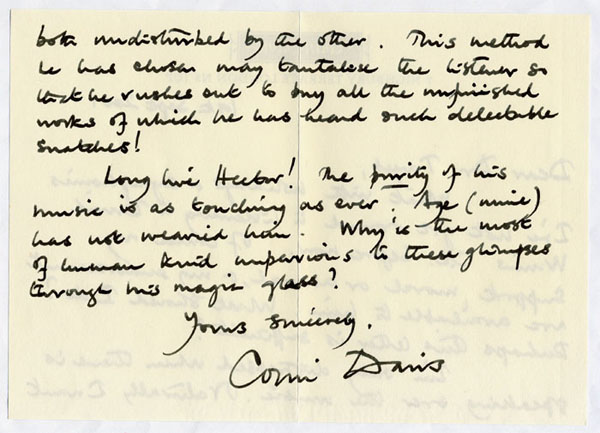 both undisturbed by the other. This method
he has chosen may tantalise the listener so
that he rushes out to buy all the unfinished
works of which he has heard such delectable
snatches!
Long live Hector! The purity of his
music is as touching as ever. Age (mine)
has not wearied him. Why is the most
of human kind impervious to these glimpses
through his magic glass?
Yours sincerely.
Colin Davis